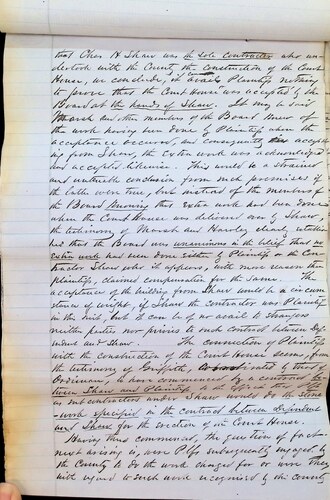 that Chas H Shaw was the sole contractor who un-
dertook with the County the construction of the Court
House, we conclude, it avails Plaintiffs nothing
to prove that the Court House was accepted by the
Board at the hands of Shaw. It may be said
Marsh and other members of the Board knew of
the work having been done by Plaintiffs when the
acceptance occurred, and consequently in accept-
ing from Shaw, the extra work was acknowledged
and accepted likewise. This would be a strained
and unreliable conclusion from such premises if
the latter were true, but instead of the members of
the Board knowing that extra work had been done
when the Court House was delivered over by Shaw,
the testimony of Marsh and Hawley clearly
that the Board was unanimous in the belief that no
extra work had been done either by Plaintiffs or the Con-
tractor Shaw who it appears, with more reason than
plaintiffs, claimed compensation for the same. The
acceptance of the building from Shaw would be a circum
stance of weight, if Shaw the contractor was Plaintiff
in this suit, but it can be of no avail to strangers
neither parties nor privies to such contract between Def
endant and Shaw. The connection of Plaintiffs
with the construction of the Court House seems, from
the testimony of Griffith, by that of
to have commenced by a contract be
tween Shaw and Plaintiffs, to the effect that
as sub contractors under Shaw would do the stone
-work specified in the contract between Defendant
and Shaw for the erection of the Court House.
Having thus commenced, the question of fact
next arising is, were Plffs subsequently engaged by
the County to do the work charged for or were they
with regard to such work recognized by the County